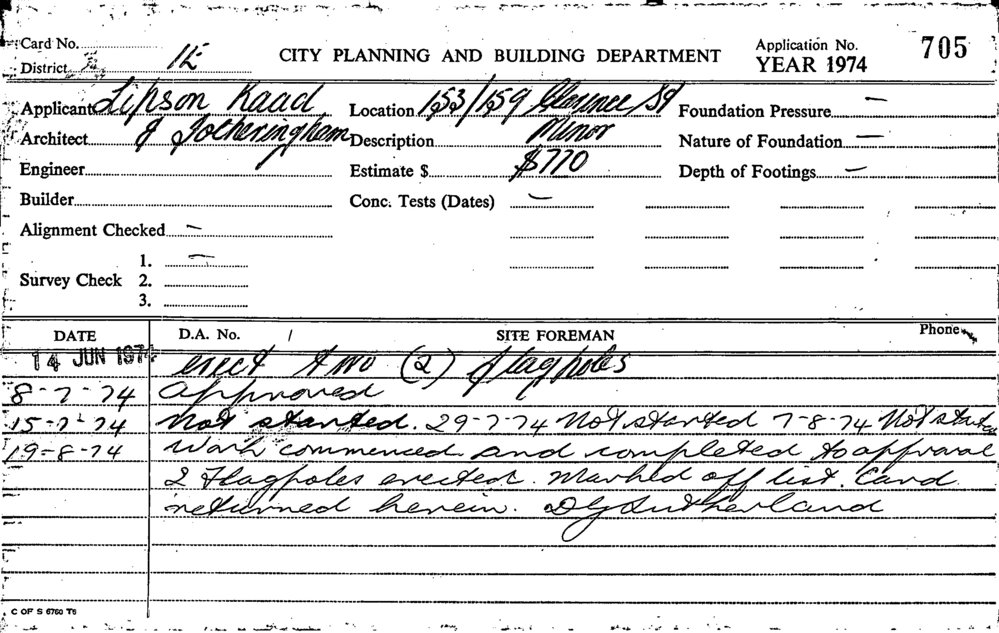 Card No.
District 1E
CITY PLANNING AND BUILDING DEPARTMENT
Application No. 705
YEAR 1974
Applicant Lipson Kaad
Architect & Fotheringham
Engineer
Builder
Alignment Checked –
Survey Check 1. –
2.
3.
Location 153/159 Clarence St
Description Minor
Estimate $ $770
Conc. Tests (Dates) –
Foundation Pressure –
Nature of Foundation –
Depth of Footings –
DATE D.A. No. / SITE FOREMAN Phone
14 JUN 1974 erect two (2) flagpoles
8-7-74 Approved
15-7-74 Not started. 29-7-74 Not started 7-8-74 Not started
19-8-74 Work commenced and completed to approval
2 Flagpoles erected. Marked off list. Card
returned herein. DG Sutherland
C OF S 6760 T6